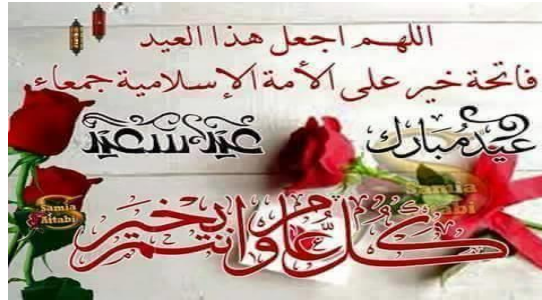 اللهم اجعل هذا العيد
فاتحة خير على الأمة الإسلامية جمعاء
عيد مُبارك عيد سعيد
كل عام وانتم بخير
Samia
Aftabi
Samia
tabi